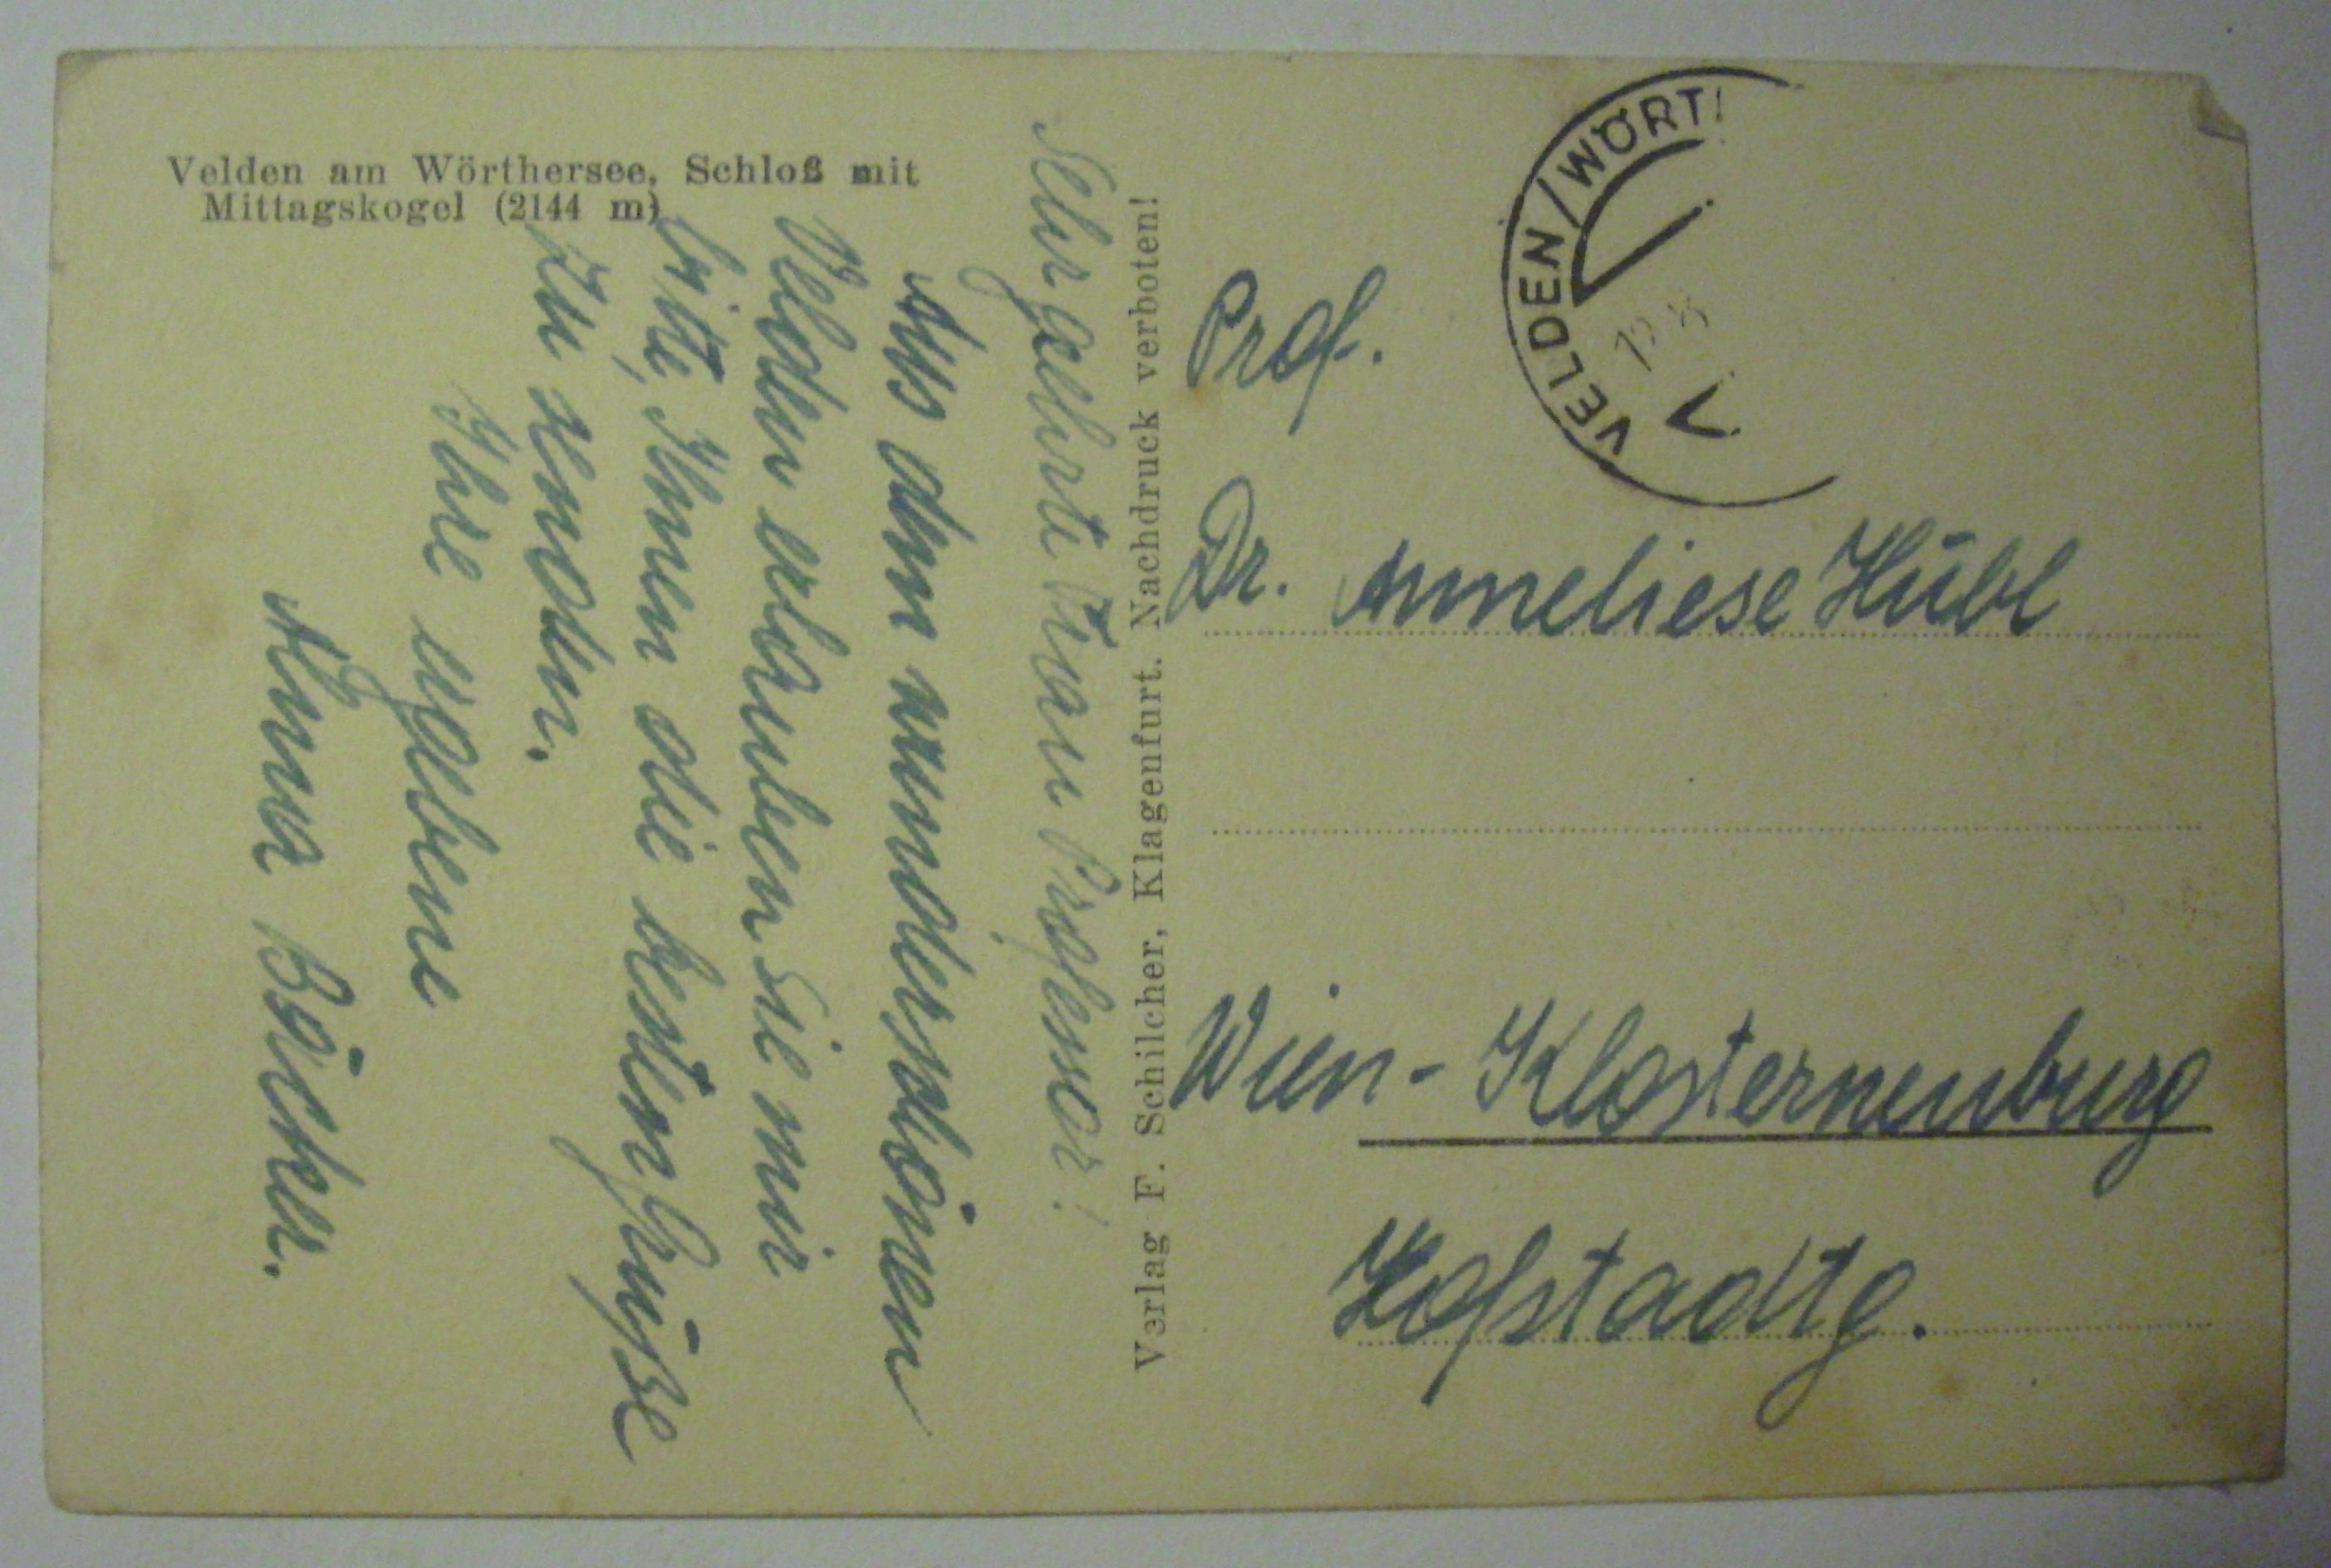 Velden am Wörthersee, Schloß mit
Mittagskogel (2144 m)
Sehr geehrte Frau Professor!
Aus dem wunderschönen
Velden erlauben Sie mir
bitte, Ihnen die besten Grüße
zu senden.
Ihre ergebene
Anna
Verlag F. Schilcher, Klagenfurt. Nachdruck verboten!
VELDEN/WÖRT
Prof.
Dr. Anneliese Hübl
Wien - Klosterneuburg
Hofstadtg.